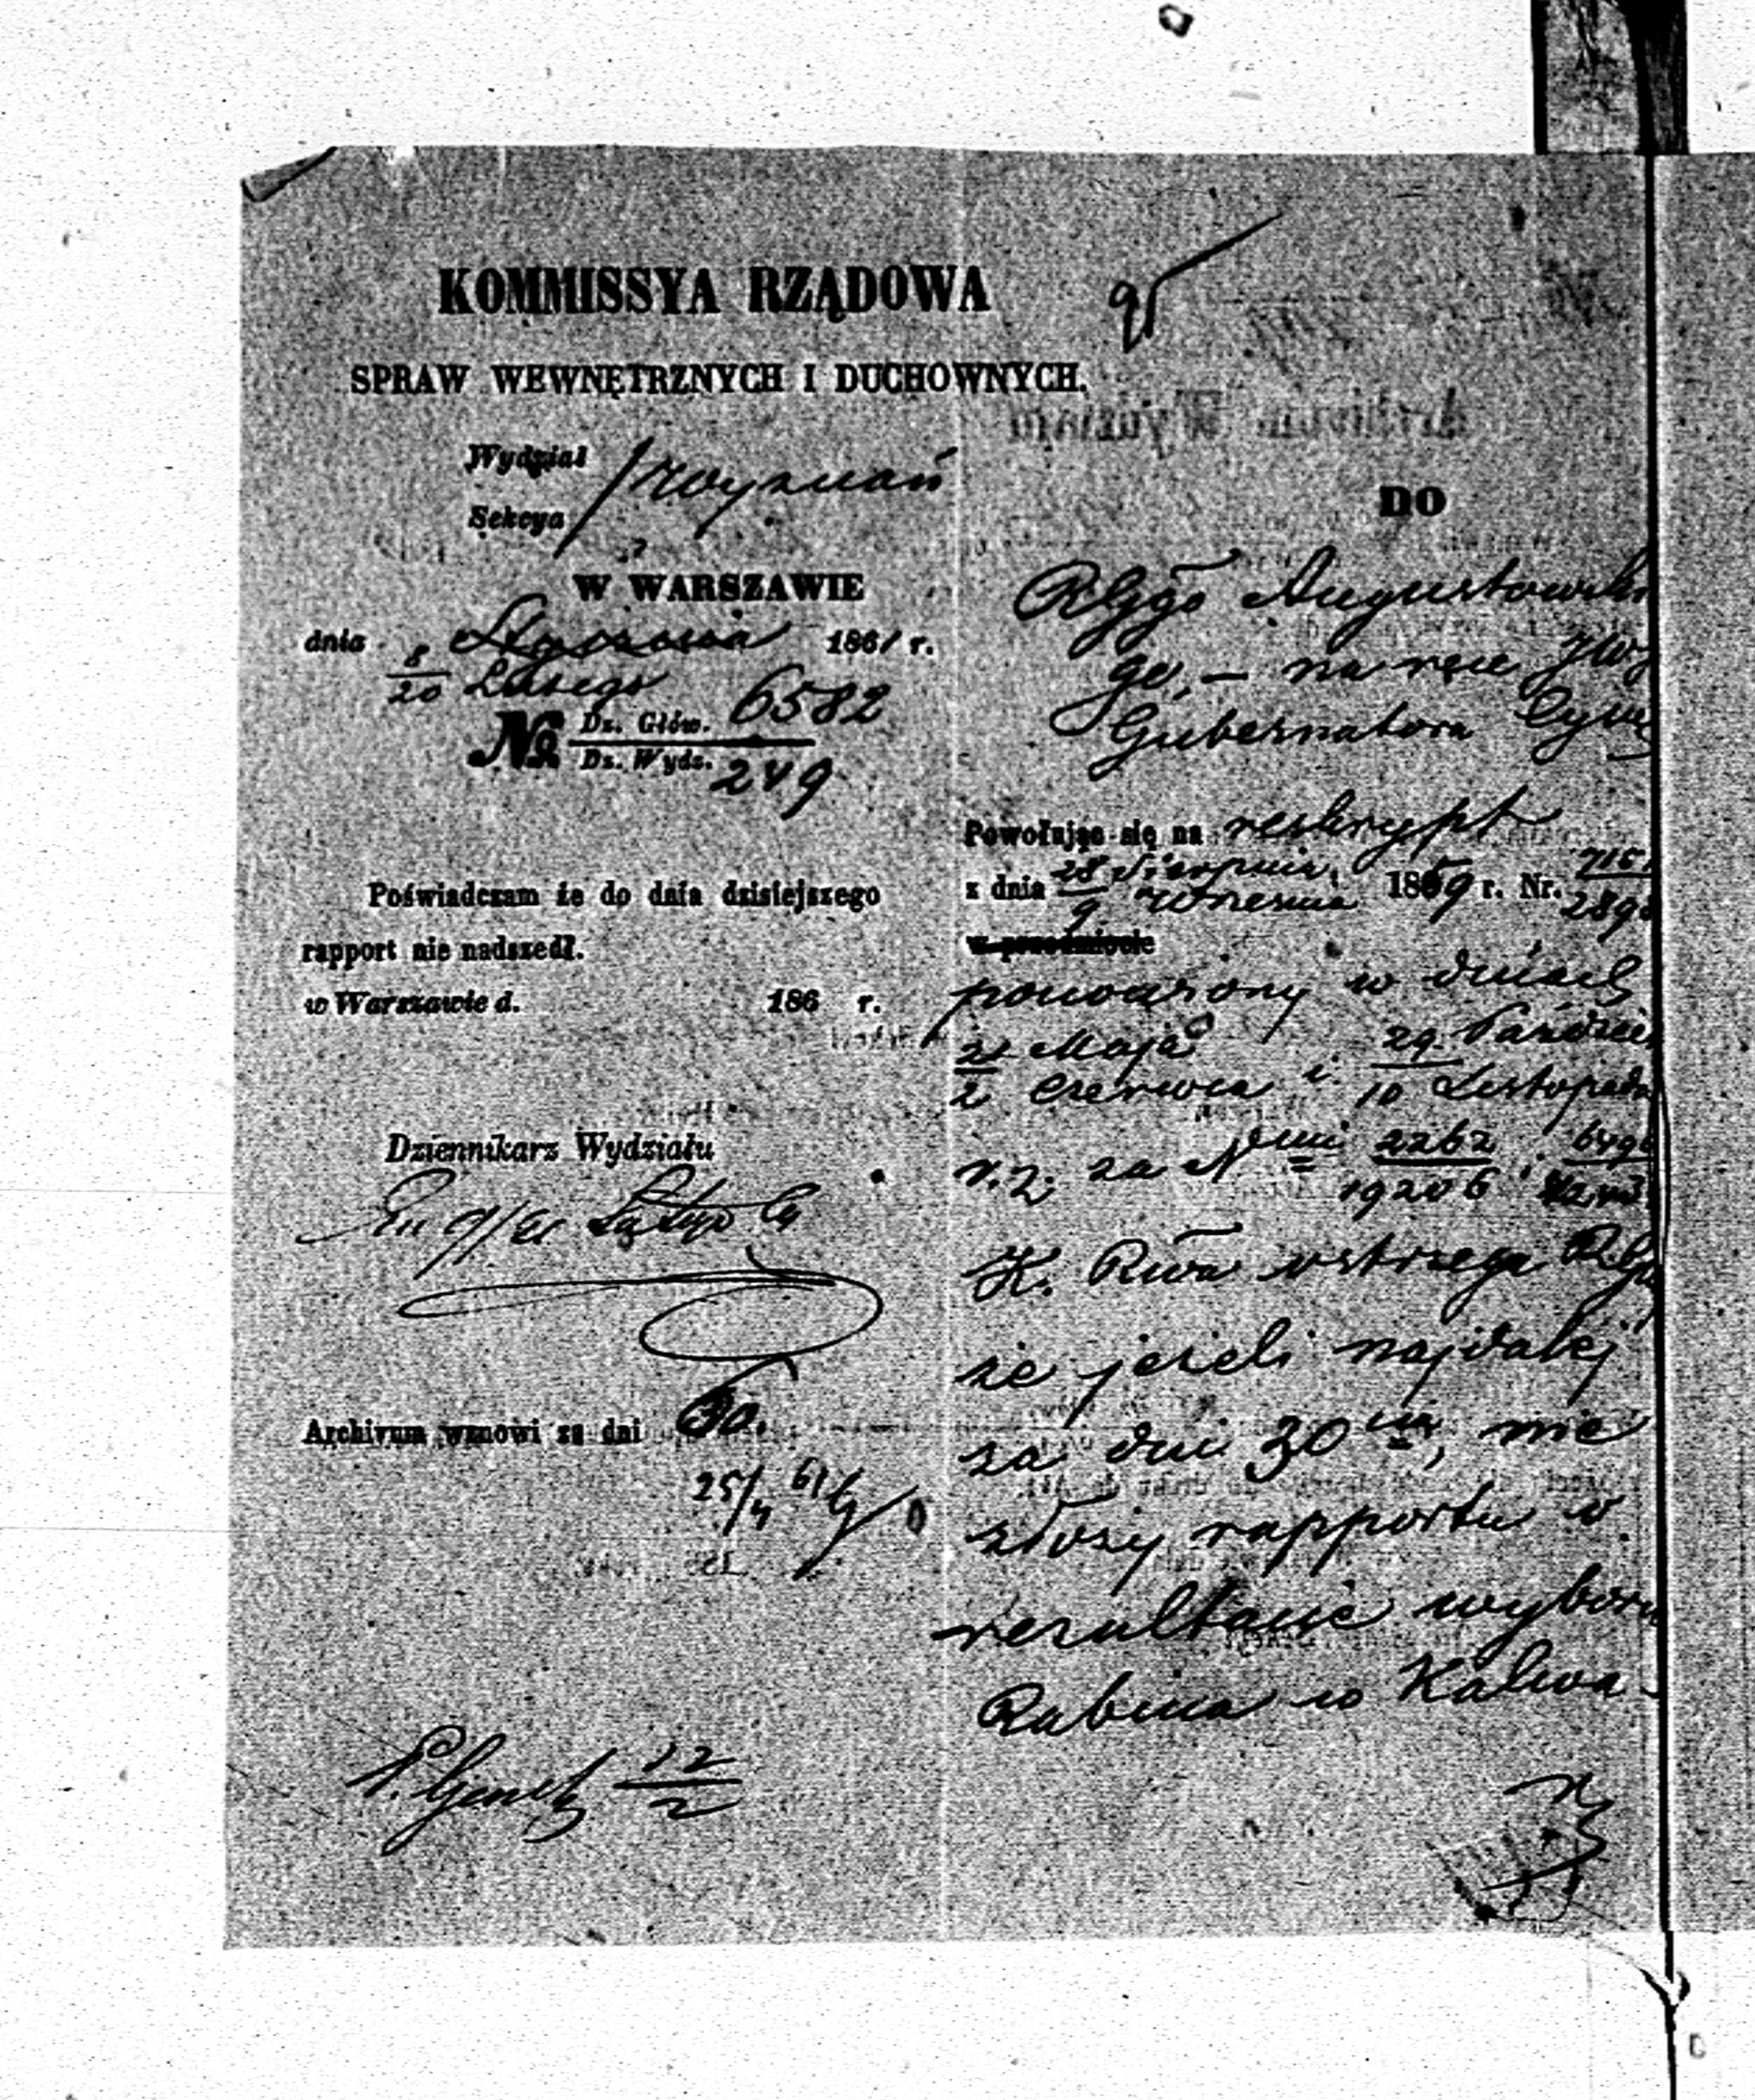 KOMMISSYA RZĄDOWA
SPRAW WEWNĘTRZNYCH I DUCHOWNYCH.
Wydział
Sekcya
Wyznań
W WARSZAWIE
dnia 8 Stycznia 1861 r.
20 Lutego
№ Dz. Głów. 6582
Dz. Wydz. 249
Poświadczam że do dnia dzisiejszego
rapport nie nadszedł.
w Warszawie d. 186 r.
Dziennikarz Wydziału
Archivum wznowi za dni 30.
25/4 61
12
2
95
DO
RGgo Augustowski
go, — na ręce JW
Gubernatora Cywil
Powołując się na reskrypt
z dnia 28 Sierpnia 1859 r. Nr.
9 Września
w przedmiocie
ponowiony w dniach
21 Maja i 29 Paździer
2 Czerwca 10 Listopada
r. z. za Nmi 2262 i
19206
K. Rwa ostrzega RGu
że jeżeli najdalej
za dni 30, nie
złoży rapportu o
rezultacie wyboru
Rabina w Kalwa-